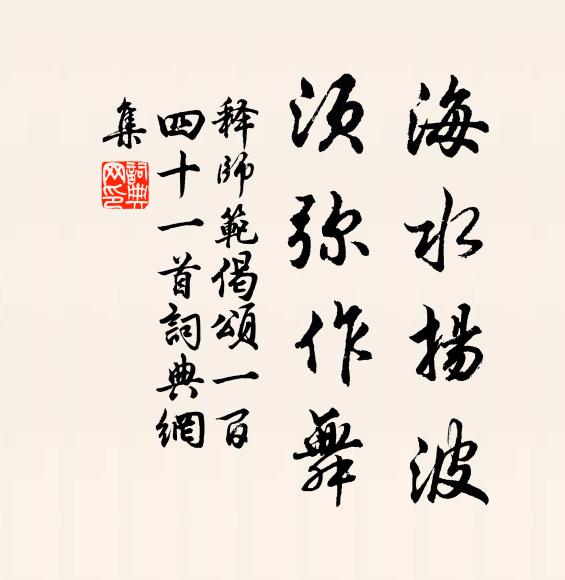 海水揚波
須弥作舞
释師範偈頌一百
四十一首詞典網
集
詞典
网印